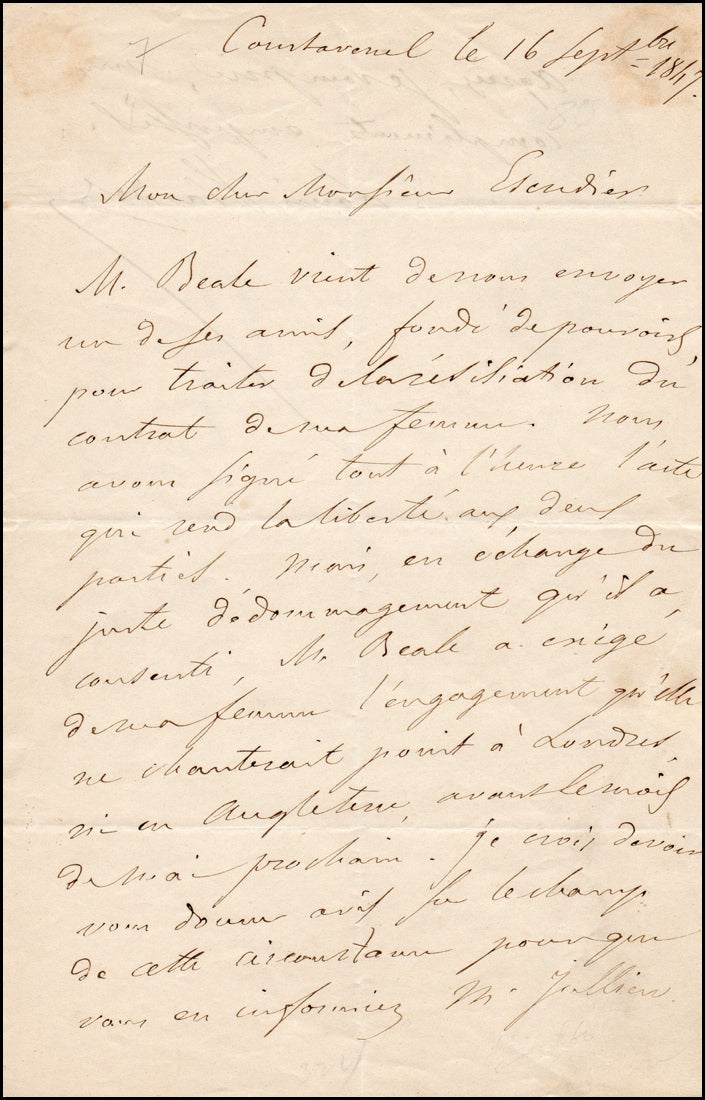 7
Courtavenel le 16 Sept.bre 1847.
Mon cher Monsieur Escudier
M. Beale vient de nous envoyer
un de ses amis, fondé de pouvoirs,
pour traiter de la résiliation du
contrat de ma femme. Nous
avons signé tout à l'heure l'acte
qui rend la liberté aux deux
parties. Mais, en échange du
juste dédommagement qu'il a
consenti, M. Beale a exigé
de ma femme l'engagement qu'elle
ne chanterait point à Londres,
ni en Angleterre, avant le mois
de mai prochain. Je crois devoir
vous donner avis sur le champ
de cette circonstance pour que
vous en informiez M. Jullien.